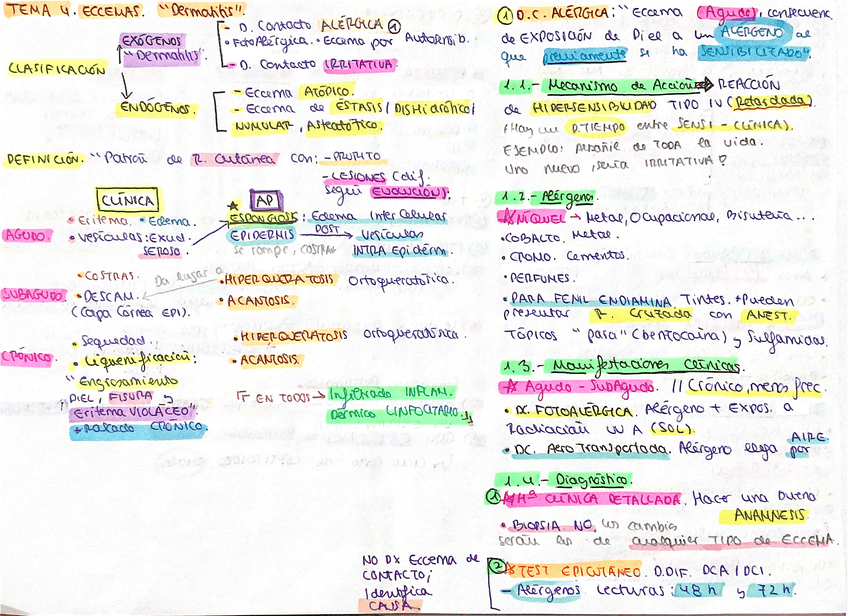 TEMA 4. ECCEMAS. "Dermatitis".
CLASIFICACIÓN
EXÓGENOS
"Dermatitis".
- D. Contacto ALÉRGICA ①
• FotoAlérgica. • Eccema por Autosensib.
- D. Contacto IRRITATIVA.
ENDÓGENOS.
- Eccema ATÓPICO.
- Eccema de ÉSTASIS / DISHIDRÓTICO /
NUMULAR, Asteatótico.
DEFINICIÓN. "Patrón de R. Cutánea con: - PRURITO
- LESIONES (dif.
según EVOLUCIÓN).
CLÍNICA
AP
AGUDO
• Eritema. • Edema.
• Vesículas: Exud.
SEROSO
ESPONGIOSIS: Edema InterCelular
EPIDERMIS POST → Vesículas
se rompe, COSTRAS INTRA Epiderm.
SUBAGUDO
• COSTRAS. Da lugar a
• DESCAM.
(Capa Córnea EPI).
• HIPERQUERATOSIS Ortoqueratótica.
• ACANTOSIS.
CRÓNICO.
• Sequedad.
• Liquenificación:
"Engrosamiento
PIEL, FISURA y
Eritema VIOLÁCEO"
+ Rascado CRÓNICO.
• HIPERQUERATOSIS ortoqueratótica.
• ACANTOSIS.
EN TODOS → Infiltrado INFLAM.
Dérmico LINFOCITARIO.
① D.C. ALÉRGICA: "Eccema (Agudo), consecuenc.
de EXPOSICIÓN de Piel a un ALÉRGENO al
que previamente se ha SENSIBILIZADO".
1.1.- Mecanismo de Acción → REACCIÓN
de HIPERSENSIBILIDAD TIPO IV (Retardada).
(Hay un P. TIEMPO entre SENSI - CLÍNICA).
EJEMPLO: de TODA la vida.
Uno nuevo, sería IRRITATIVA?
1.2.- Alérgenos.
NIQUEL → Metal, Ocupacional, Bisutería...
• COBALTO. Metal.
• CROMO. Cementos.
• PERFUMES.
• PARA FENIL ENDIAMINA Tintes. + Pueden
presentar R. Cruzada con ANEST.
TÓPICOS "para" (bentocaína) y Sulfamidas.
1.3.- Manifestaciones Clínicas.
Agudo - SubAgudo. // Crónico, menos frec.
• DC. FOTOALÉRGICA. Alérgeno + Expos. a
Radiación UVA (SOL).
• DC. AeroTransportada. Alérgeno llega por AIRE.
1.4.- Diagnóstico.
① Hª CLÍNICA DETALLADA. Hacer una buena
ANAMNESIS.
• BIOPSIA NO, los cambios
serán los de cualquier TIPO de ECCEMA.
② TEST EPICUTÁNEO. D.DIF. DCA / DCI.
- Alérgenos Lecturas: 48 h y 72 h.
NO DX Eccema de
CONTACTO;
Identifica
CAUSA.